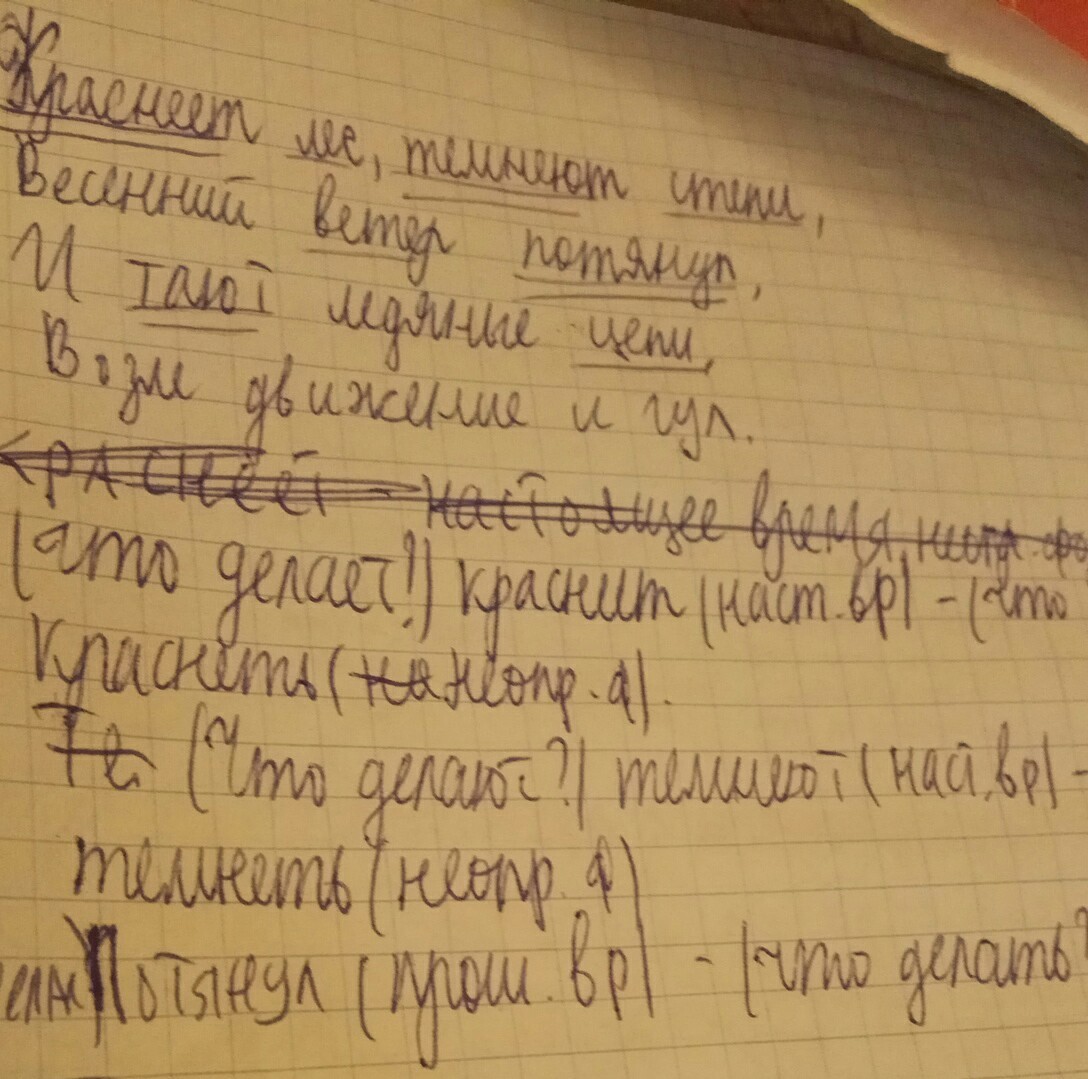 Краснеет лес, темнеют степи,
Весенний ветер потянул,
И тают ледяные цепи,
Возле движение и гул.
краснеет - настоящее время, неопр. фо
(что делает?) краснит (наст. вр) - (что
краснеть (на неопр. ф).
Те (Что делают?) темнеют (нас. вр) -
темнеть (неопр. ф)
Потянул (прош. вр) - (что делать?